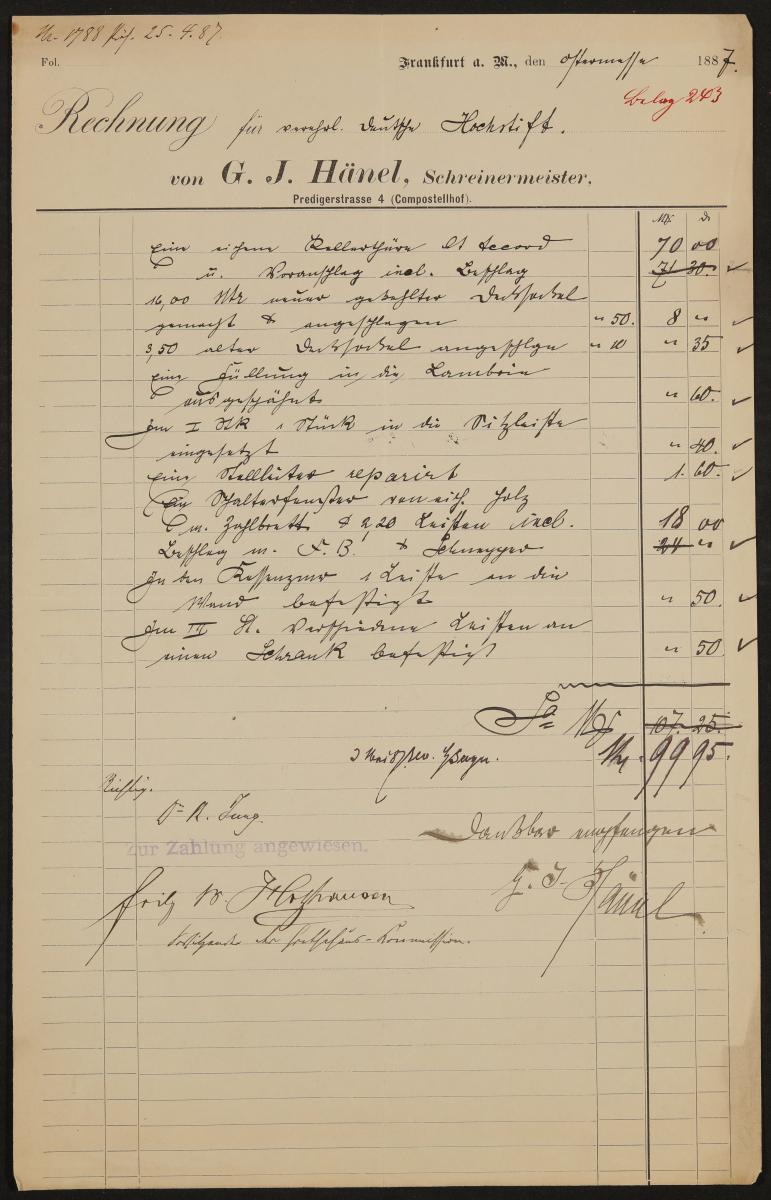 Nr. 1788 Prs. 25. 4. 87.
Fol. Frankfurt a. M., den Ostermesse 1887.
Belag 243
Rechnung für verehrl. Deutsche Hochstift.
von G. J. Hänel, Schreinermeister,
Predigerstrasse 4 (Compostellhof).
Mk. d.
Eine eichene Kellerthüre lt Accord 70 00
u. Voranschlag incl. Beschlag 71 30.
16,00 Mtr neuer gekehlter Decksockel
gemacht & angeschlagen " 50. 8 "
3,50 alter Decksockel angeschlgn " 10 " 35
Eine Füllung in die Lambrie
ausgespähnt " 60.
Im I Stk 1 Stück in die Sitzleiste
eingesetzt " 40.
Eine Stellleiter reparirt 1. 60.
Ein Schalterfenster von eich. Holz
m. Zahlbrett & 2,20 Leisten incl. 18 00
Beschlag m. F. B. & Schnepper 24 "
In den Kassenzimr 1 Leiste an die
Wand befestigt " 50.
Im III St. Verschiedene Leisten an
einen Schrank befestigt " 50
Sa Mk 107. 25.
Mk. 99 95.
Richtig.
Dr R. Jung.
Dankbar empfangen
zur Zahlung angewiesen.
G. J. Hänel
Fritz W.
Vorsitzender der Goethehaus-Kommission.